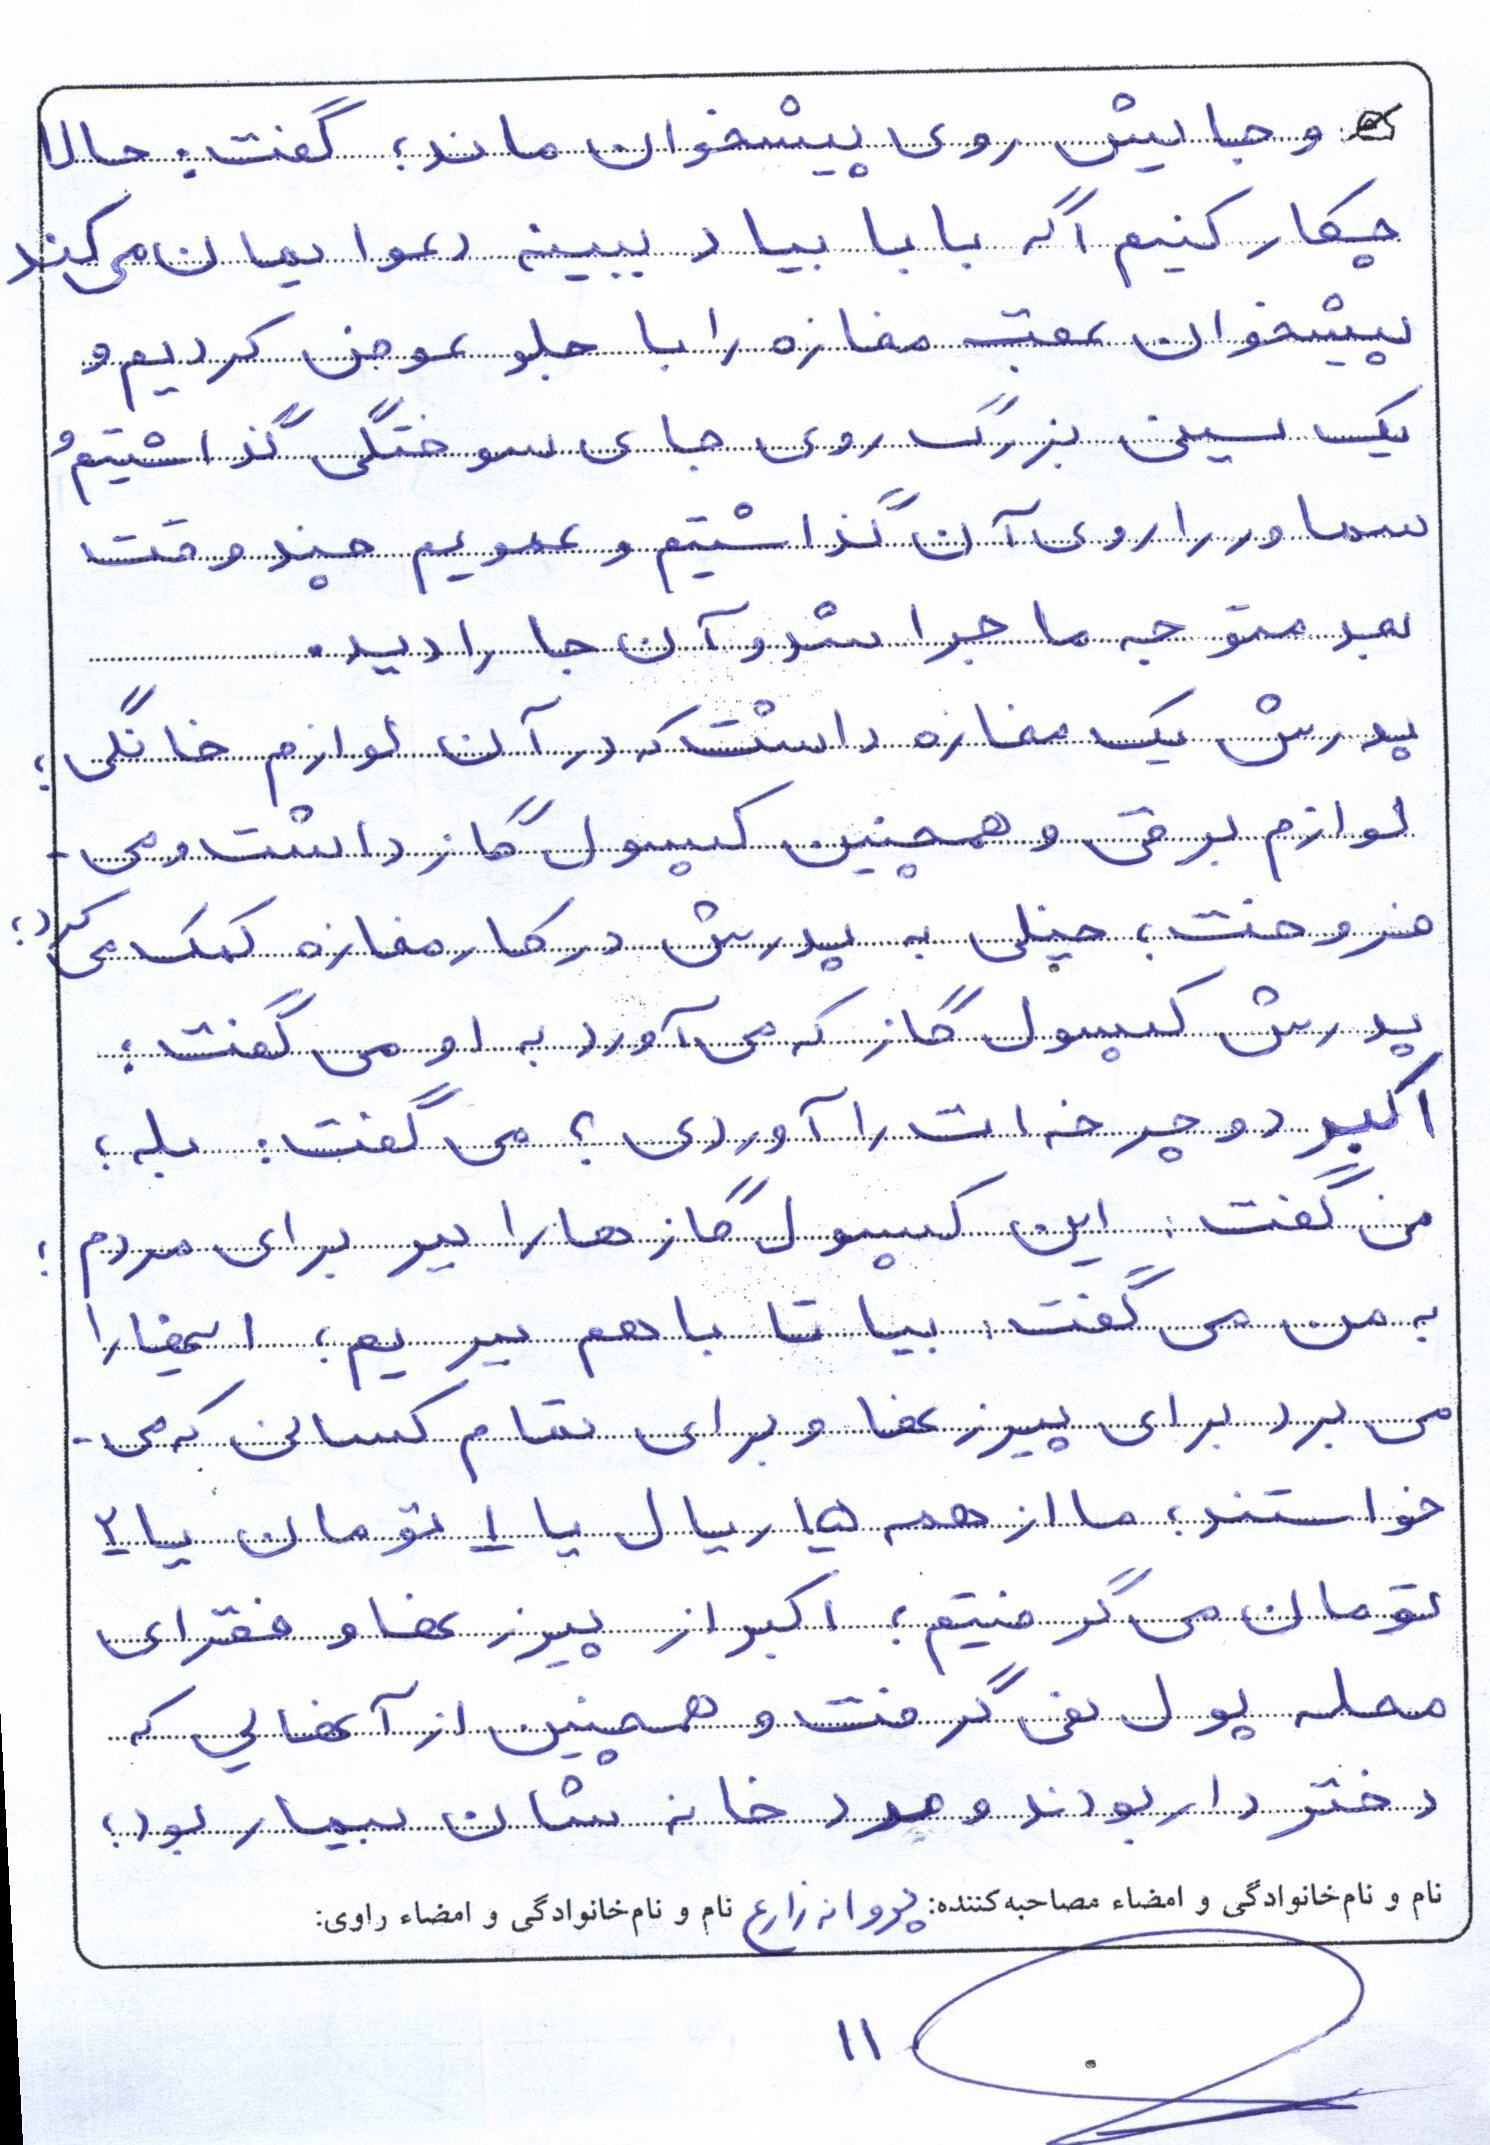 و جایش روی پیشخوان ماند؛ گفت: حالا
چکار کنیم اگه بابا بیاد ببینه دعوایمان می‌کند
پیشخوان عقب مغازه را با جلو عوض کردیم و
یک سینی بزرگ روی جای سوختگی گذاشتیم و
سماور را روی آن گذاشتیم و عمویم چند وقت
بعد متوجه ماجرا شد و آن جا را دید.
پدرش یک مغازه داشت که در آن لوازم خانگی؛
لوازم برقی و همچنین کپسول گاز داشت و می-
فروخت؛ خیلی به پدرش در کار مغازه کمک می‌کرد؛
پدرش کپسول گاز که می‌آورد به او می گفت:
اکبر دو چرخه ات را آوردی؟ می گفت: بله؛
می گفت: این کپسول گازها را ببر برای مردم؛
به من می گفت: بیا تا با هم ببریم؛ اینها را
می برد برای پیرزنها و برای تمام کسانی که می-
خواستند؛ ما از همه ۱۵ ریال یا ۱ تومان یا ۲
تومان می گرفتیم؛ اکبر از پیرزنها و فقرای
محله پول نمی گرفت و همچنین از آنهایی که
دختر دار بودند و مرد خانه شان بیمار بود؛
نام و نام‌خانوادگی و امضاء مصاحبه‌کننده: پروانه زارع نام و نام‌خانوادگی و امضاء راوی:
۱۱